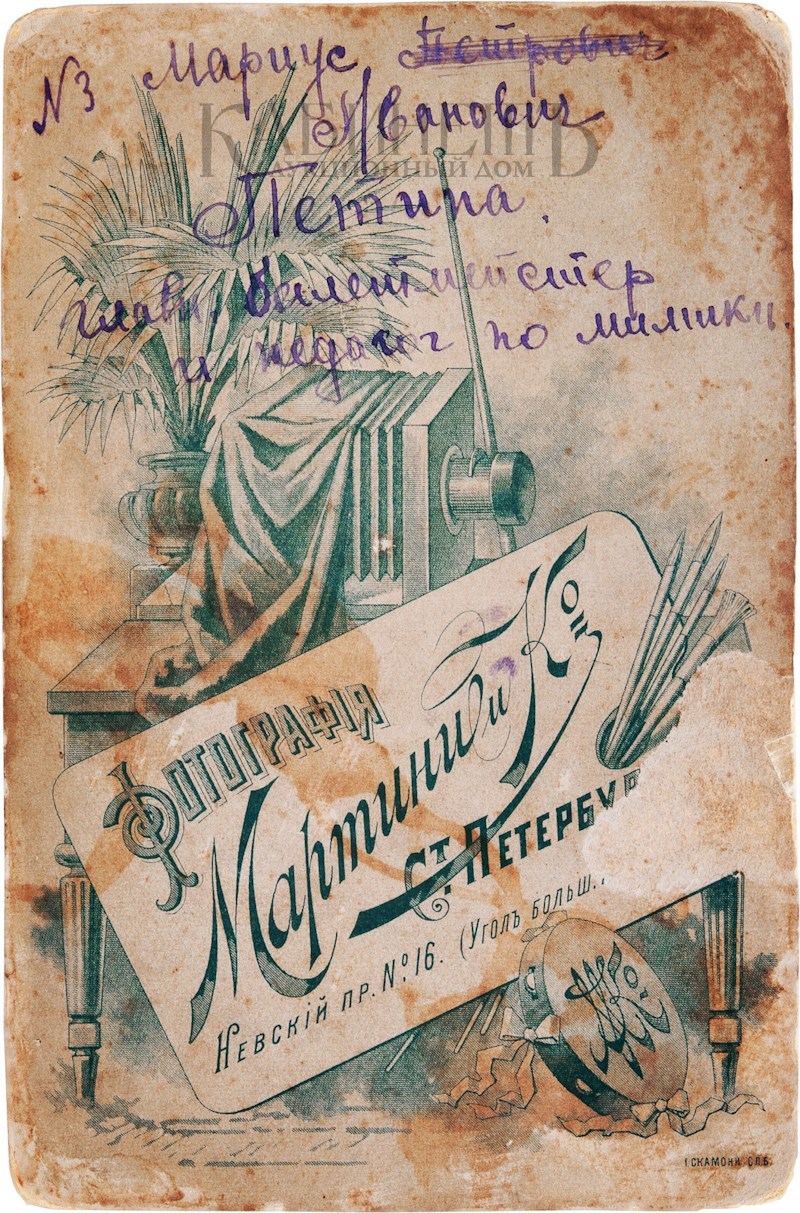 №3 Мариус Петрович
Иванович
Петипа.
главн. балетмейстер
и педагог по мимики.
КАБИНЕТЪ
АУКЦИОННЫЙ ДОМ
ФОТОГРАФІЯ
Мартини и Ко
СТ. ПЕТЕРБУР
НЕВСКІЙ ПР. № 16. (УГОЛЪ БОЛЬШ.
І. СКАМОНИ С.П.Б.